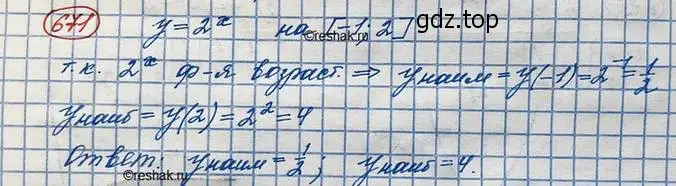 671 y = 2ˣ на [-1; 2]
гдз.top
reshak.ru
т.к. 2ˣ ф-я возраст. ⇒ y наим = y(-1) = 2⁻¹ = 1/2
y наиб = y(2) = 2² = 4
Ответ: y наим = 1/2; y наиб = 4.
reshak.ru